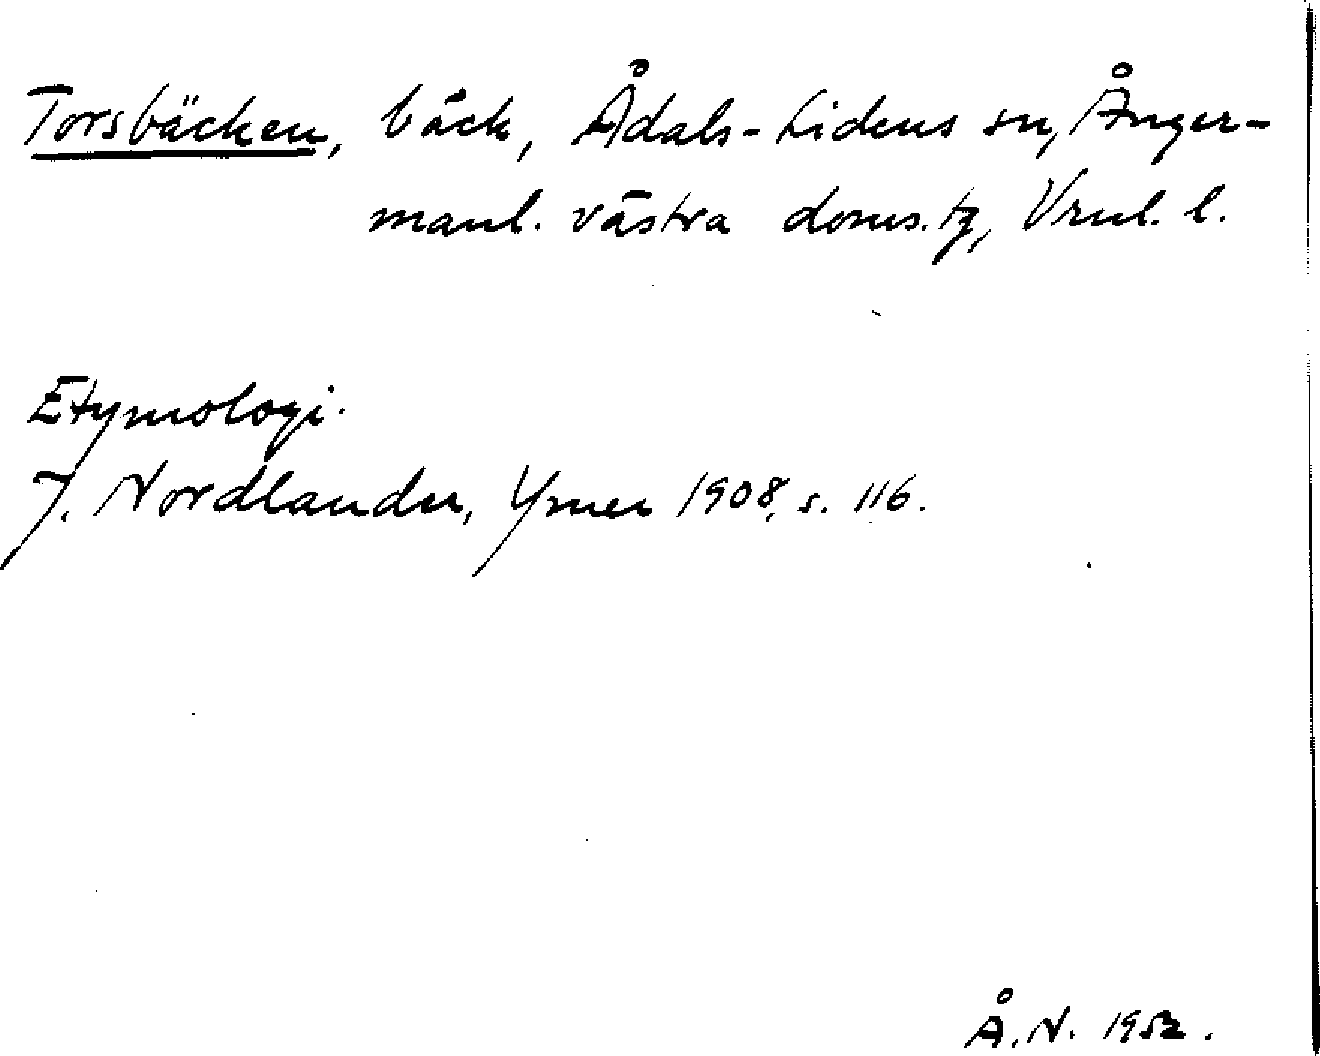 Torsbäcken, bäck, Ådals-Lidens sn, Ånger-
manl. västra doms. tg, Vrnl. l.
Etymologi.
J. Nordlander, Ymer 1908, s. 116.
Å. N. 1952.